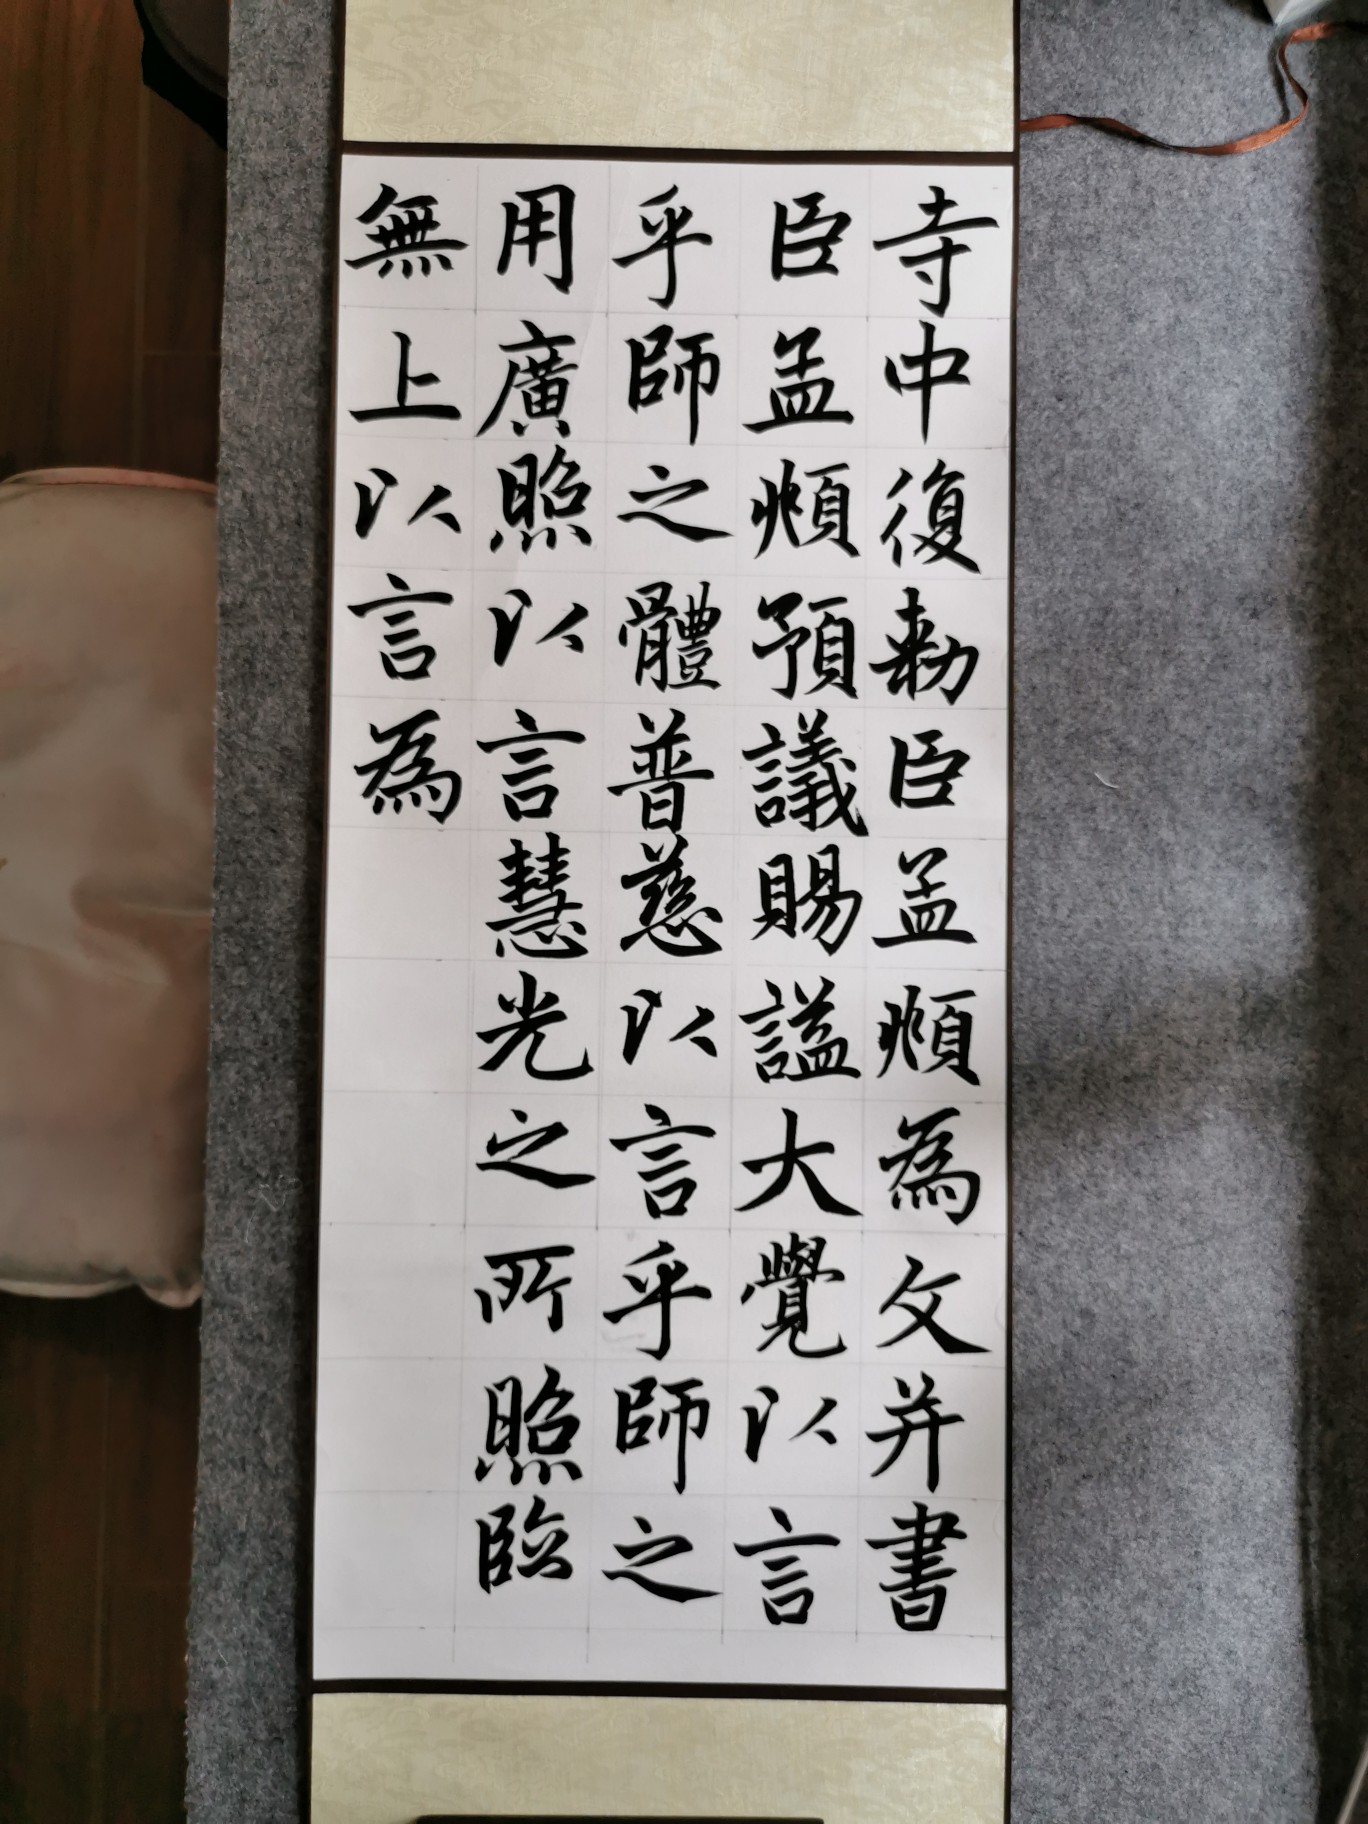 寺中復勅臣孟頫為文并書
臣孟頫預議賜謚大覺以言
乎師之體普慈以言乎師之
用廣照以言慧光之所照臨
無上以言為